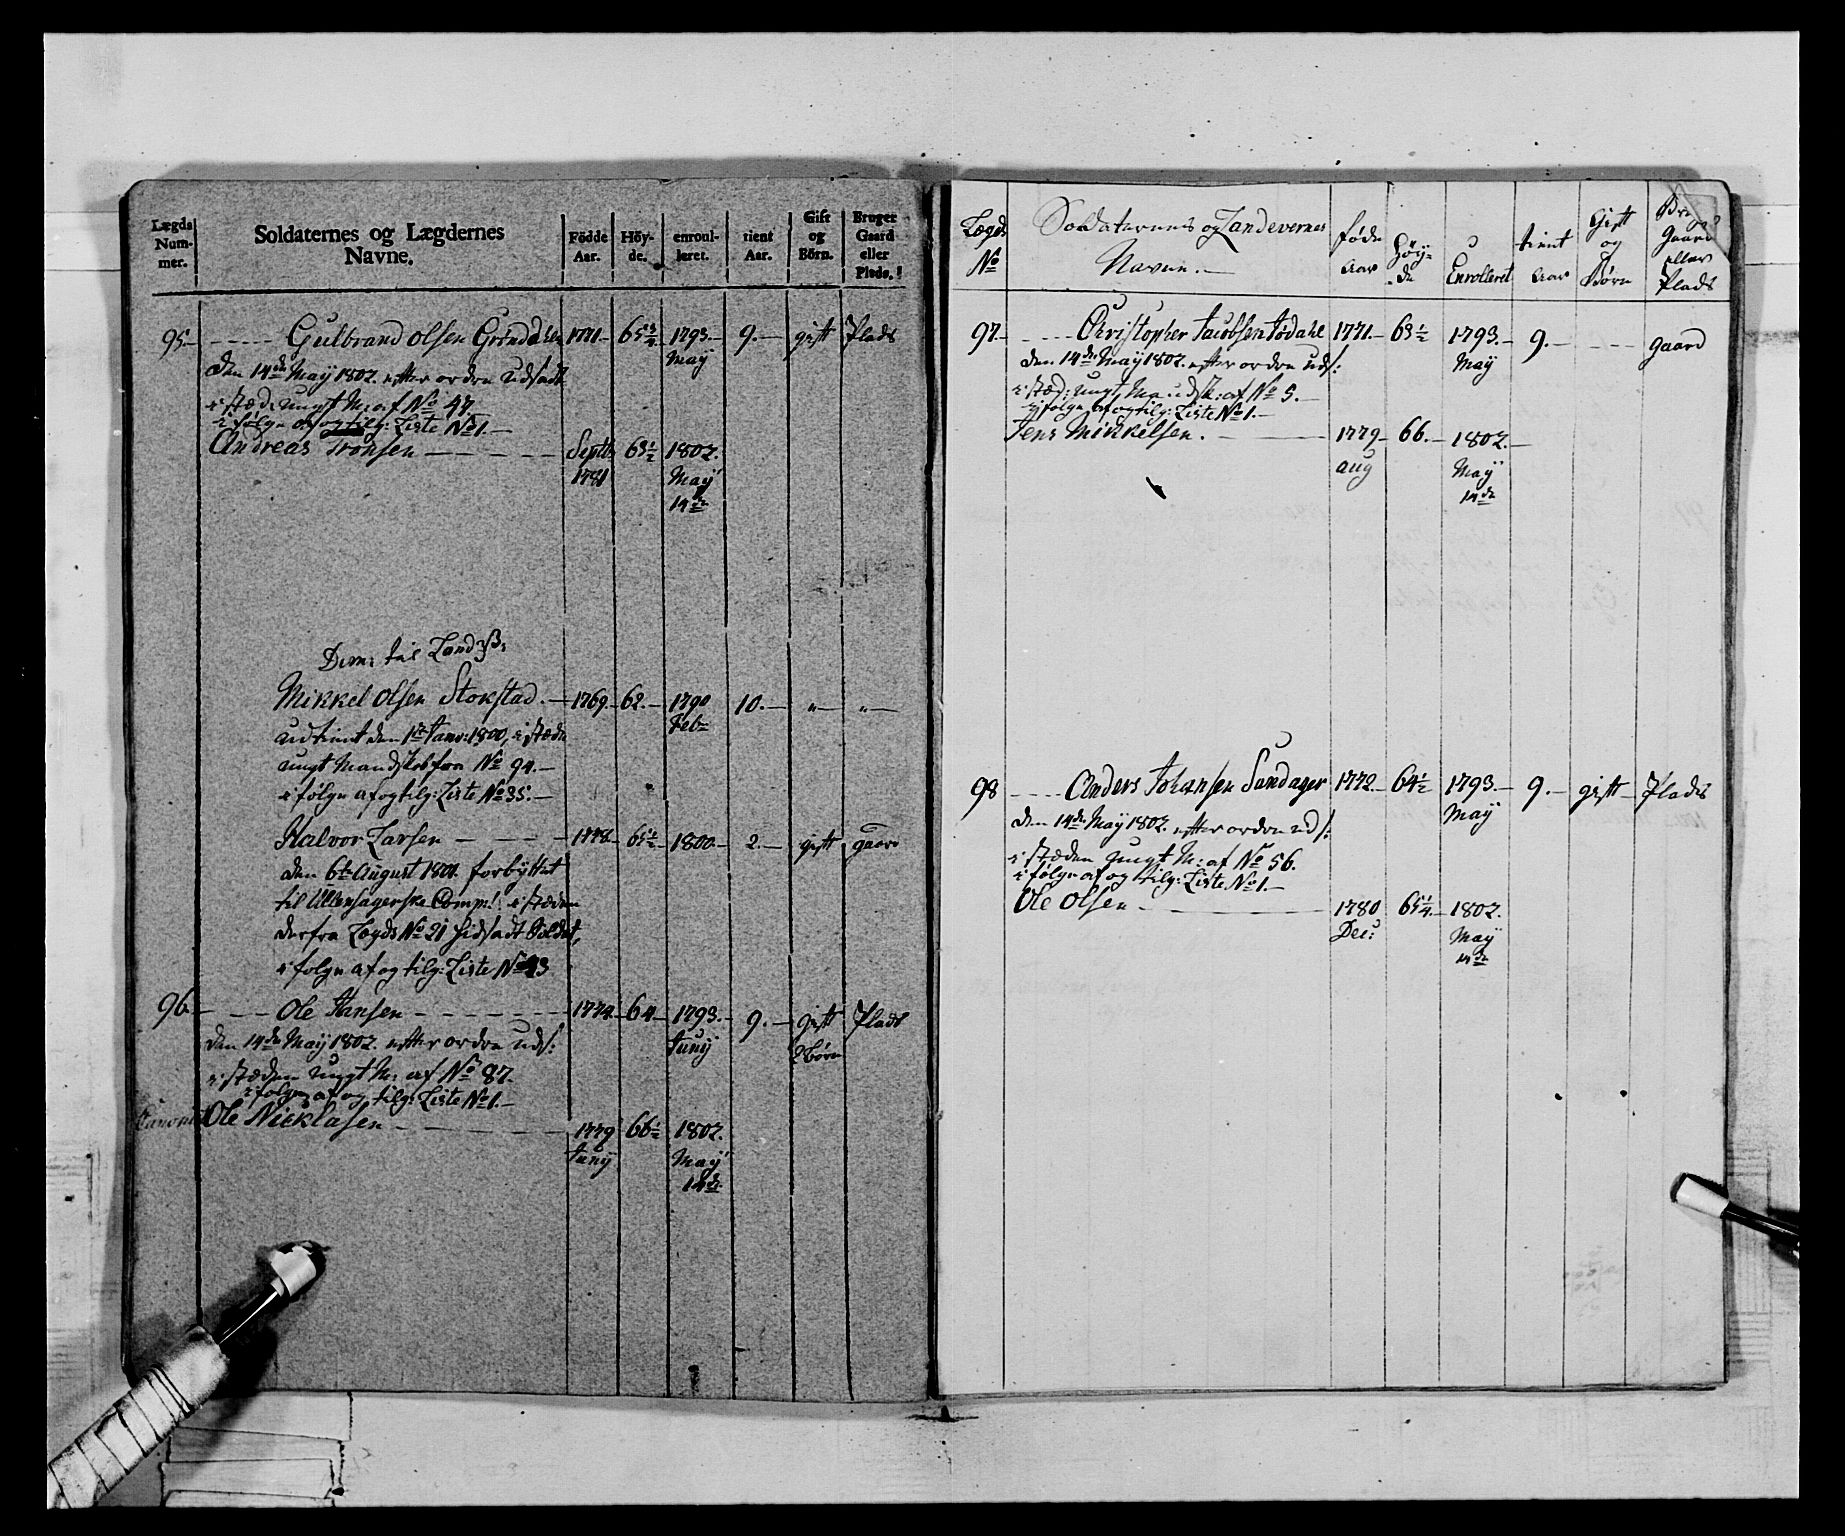 Lægds Num- mer. Soldaternes og Lægdernes Navne. Födde Aar. Höy- de. enroul- leret. tient Aar. Gift og Börn. Bruger Gaard eller Plads.
95 - Gulbrand Olsen Gröndahl 1771 - 65 3/4 1793. May 9. - gift Plads
den 14de May 1802. efter ordre udsadt
i stæd: ungt M: af No 47.
i følge af og tilg: Liste No 1. -
Andreas Tronsen - Septb: 1781 63 1/2 1802. May 14de
Dim: til Land:
Mikkel Olsen Stokstad. - 1769 - 62. - 1790 Feb: 10. - " - " -
udtient den 1te Janv: 1800, i stæden
ungt Mandskab fra No 94. -
i følge af og tilg: Liste No 35. -
Halvor Larsen - 1778 - 65 1/2 - 1800 - 2. - gift gaard
den 6te August 1801. forbyttet
til Ullensagerske Comp: i stæden
derfra Lægds No 21 hidsadt Soldat,
i følge af og tilg: Liste No 43
96. - Ole Hansen - 1774 - 64 - 1793. - Juny 9. - gift 2 Børn Plads
den 14de May 1802. efter ordre uds:
i stæden ungt M: af No 87.
i følge af og tilg: Liste No 1. -
Ole Nicklasen - 1779 Juny 66 1/2 1802. May 14de
Lægds No Soldaternes og Landevernes Navne. - føde Aar Höy- de Enrolleret tient Aar Gift og Børn Brug: Gaard eller Plads
97 - Christopher Jacobsen Tødahl 1771. - 63 1/2 1793. - May 9. - gaard
den 14de May 1802. efter ordre uds:
i stæd: ungt Ma: udsk: af No 5. -
i følge af og tilg: Liste No 1. -
Jens Mikkelsen. - 1779 - aug 66. - 1802. - May 14de
98 - Anders Johansen Sundager 1772. - 64 1/2 1793. - May 9. - gift - Plads
den 14de May 1802. efter ordre uds:
i stæden ungt M: af No 56.
i følge af og tilg: Liste No 1. -
Ole Olsen - 1780 Dec: 65 1/4 - 1802. May 14de